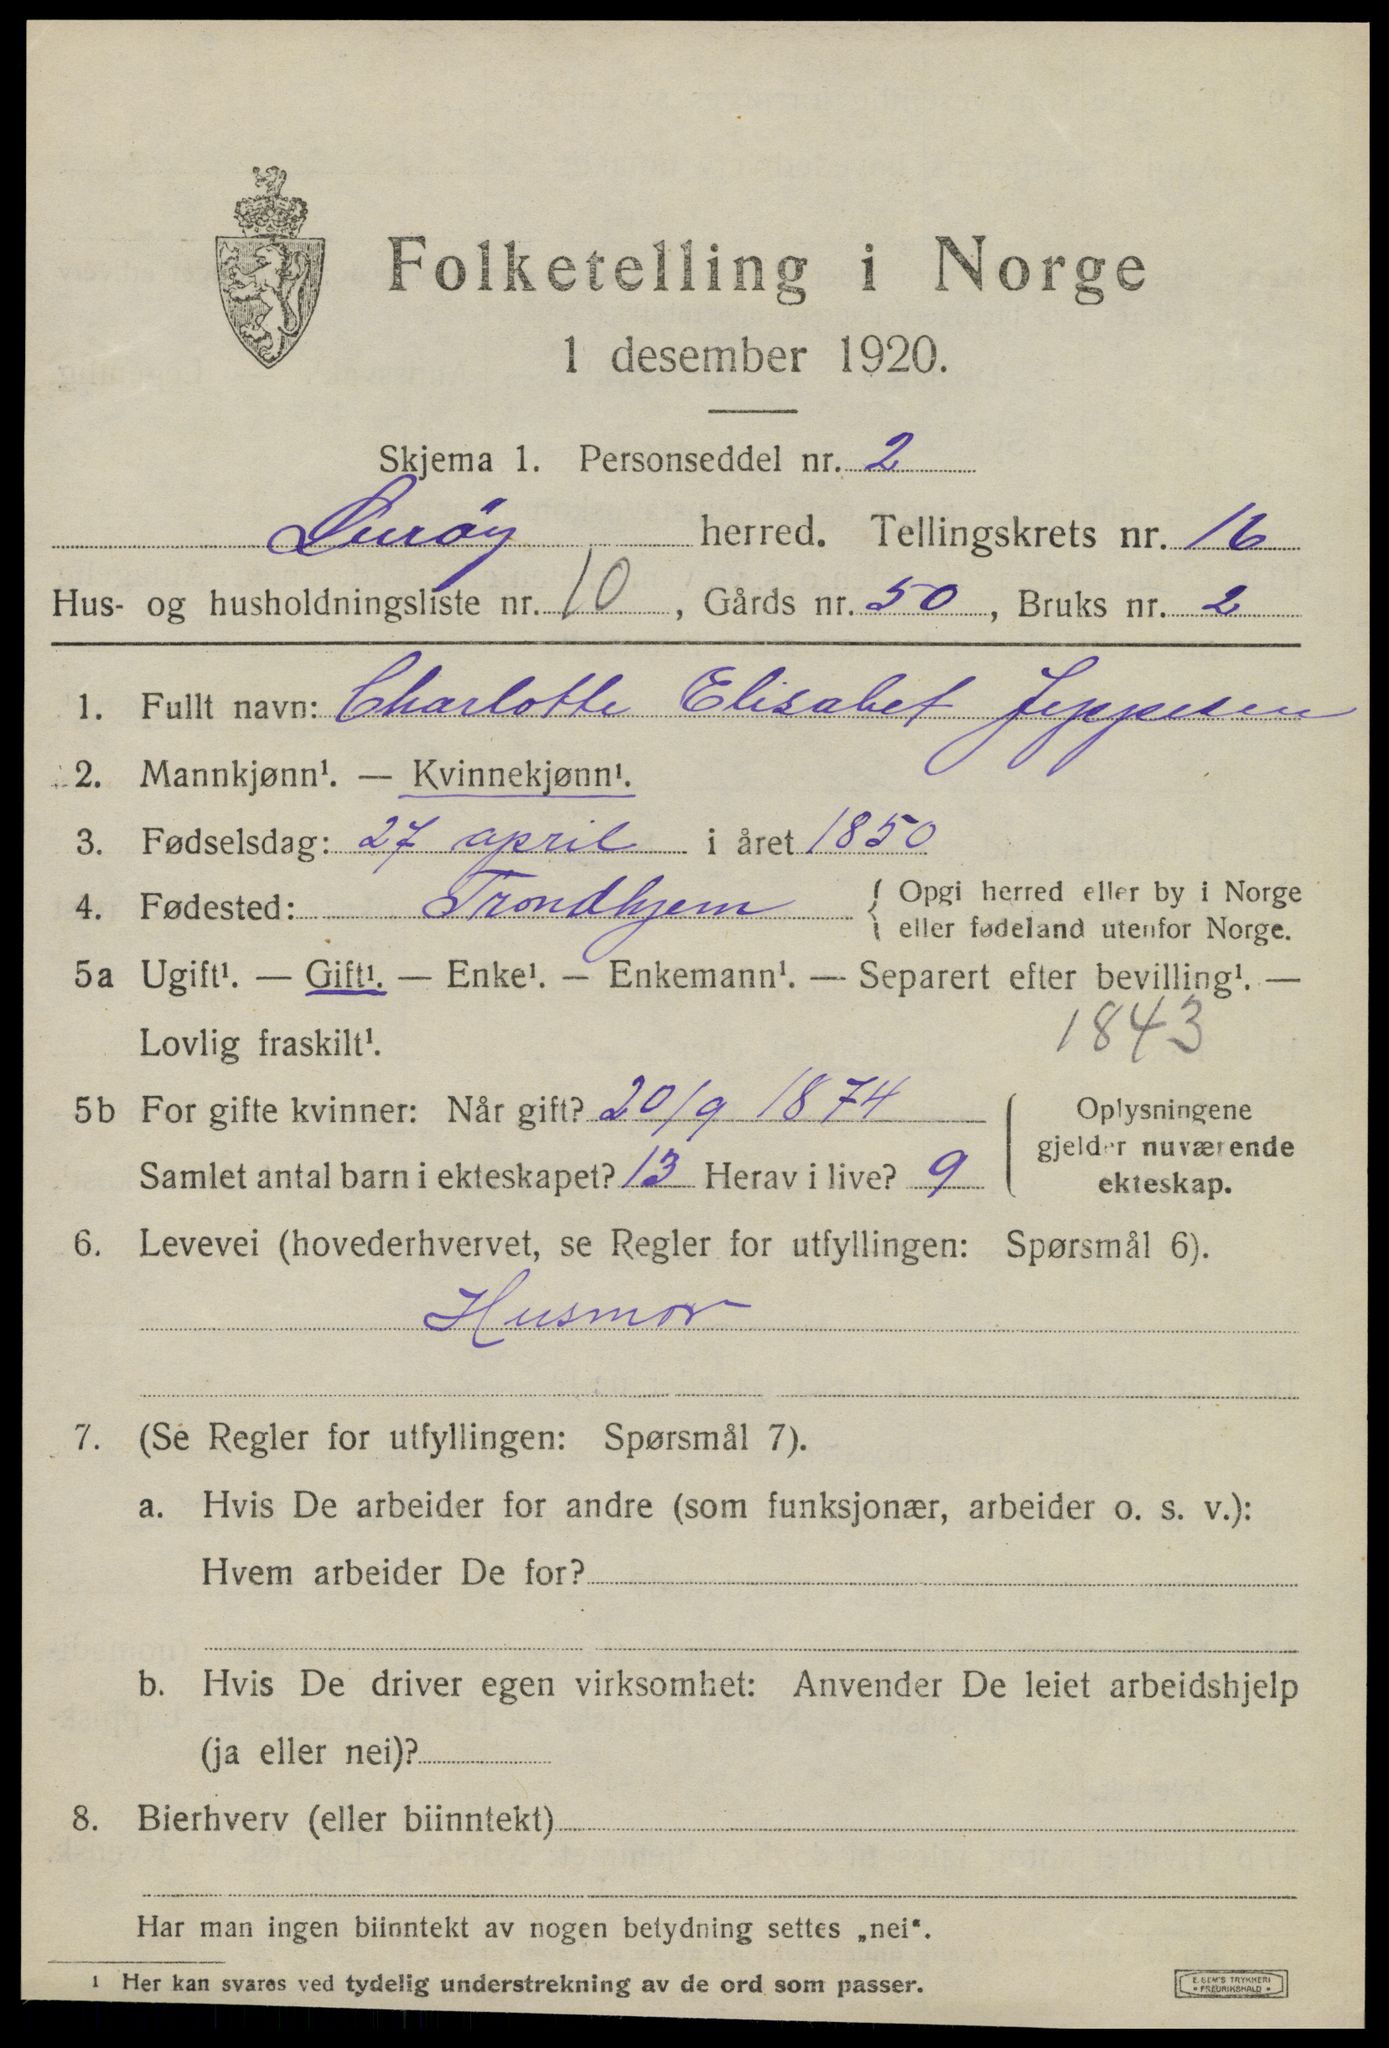 Folketelling i Norge
1 desember 1920.
Skjema 1. Personseddel nr. 2
Lurøy herred. Tellingskrets nr. 16
Hus- og husholdningsliste nr. 10, Gårds nr. 50, Bruks nr. 2
1. Fullt navn: Charlotte Elisabet Jeppesen
2. Mannkjønn¹. — Kvinnekjønn¹.
3. Fødselsdag: 27 april i året 1850
4. Fødested: Trondhjem { Opgi herred eller by i Norge
eller fødeland utenfor Norge.
5a Ugift¹. — Gift¹. — Enke¹. — Enkemann¹. — Separert efter bevilling¹. —
Lovlig fraskilt¹. 1843
5b For gifte kvinner: Når gift? 20/9 1874
Samlet antal barn i ekteskapet? 13 Herav i live? 9
Oplysningene
gjelder nuværende
ekteskap.
6. Levevei (hovederhvervet, se Regler for utfyllingen: Spørsmål 6).
Husmor
7. (Se Regler for utfyllingen: Spørsmål 7).
a. Hvis De arbeider for andre (som funksjonær, arbeider o. s. v.):
Hvem arbeider De for?
b. Hvis De driver egen virksomhet: Anvender De leiet arbeidshjelp
(ja eller nei)?
8. Bierhverv (eller biinntekt)
Har man ingen biinntekt av nogen betydning settes „nei“.
¹ Her kan svares ved tydelig understrekning av de ord som passer.
E. SEM'S TRYKKERI
• FREDRIKSHALD •